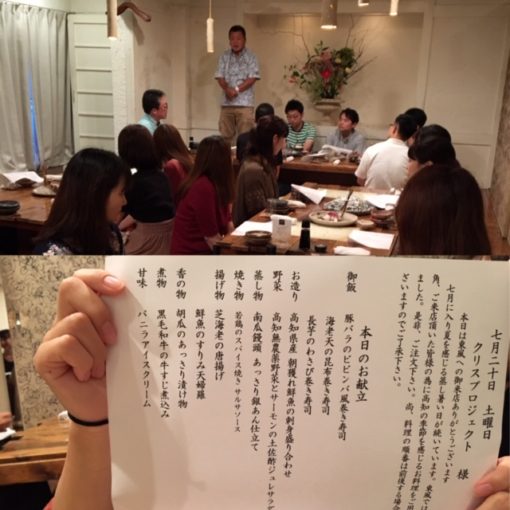 七月二十日　土曜日
クリスプロジェクト　様
本日は東風への御来店ありがとうございます
七月に入り夏を感じる蒸し暑い日が続いています。東風では
角、ご来店頂いた皆様の為に高知の季節を感じるお料理をご用
ました。是非、ご注文下さい。尚、料理の順番は前後する場合
ざいますのでご了承下さい。
本日のお献立
御飯　豚バラのビビンバ風巻き寿司
海老天の昆布巻き寿司
長芋のわさび巻き寿司
お造り　高知県産　朝獲れ鮮魚の刺身盛り合わせ
野菜　高知無農薬野菜とサーモンの土佐酢ジュレサラダ
蒸し物　南瓜饅頭　あっさり銀あん仕立て
焼き物　若鶏のスパイス焼きサルサソース
揚げ物　芝海老の唐揚げ
鮮魚のすりみ天婦羅
香の物　胡瓜のあっさり漬け物
煮物　黒毛和牛の牛すじ煮込み
甘味　バニラアイスクリーム